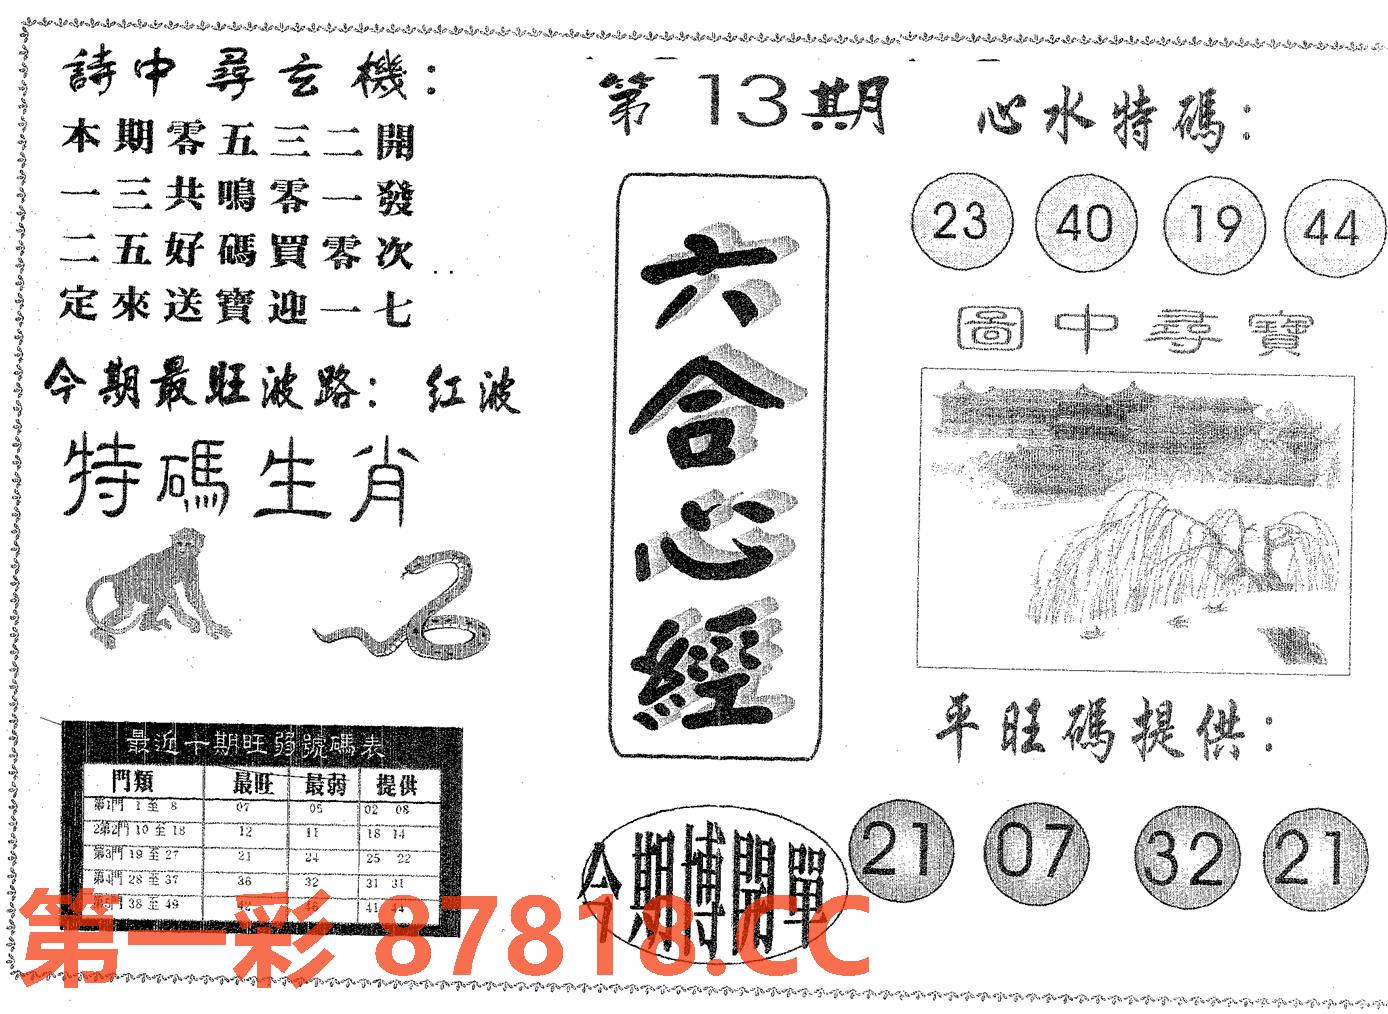 詩中尋玄機：
本期零五三二開
一三共鳴零一發
二五好碼買零次
定來送寶迎一七
今期最旺波路：紅波
特碼生肖
最近十期旺弱號碼表
門類 最旺 最弱 提供
第1門 1 至 8 07 05 02 08
2第2門 10 至 18 12 11 18 14
第3門 19 至 27 21 24 25 22
第4門 28 至 37 36 32 31 31
第5門 38 至 49 42 46 41 44
第13期
六合心經
今期博開單
心水特碼：
23 40 19 44
圖中尋寶
平旺碼提供：
21 07 32 21
第一彩 87818.CC